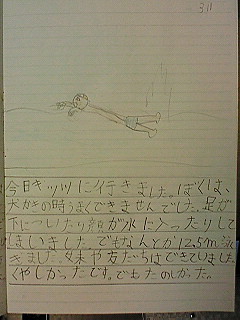 今日キッツに行きました。ぼくは、
犬かきの時うまくできませんでした。足が
下についたり顔が水に入ったりして
しまいました。でもなんとか12.5m泳
きました。妹や友だちはできていました。
くやしかったです。でもたのしかった。